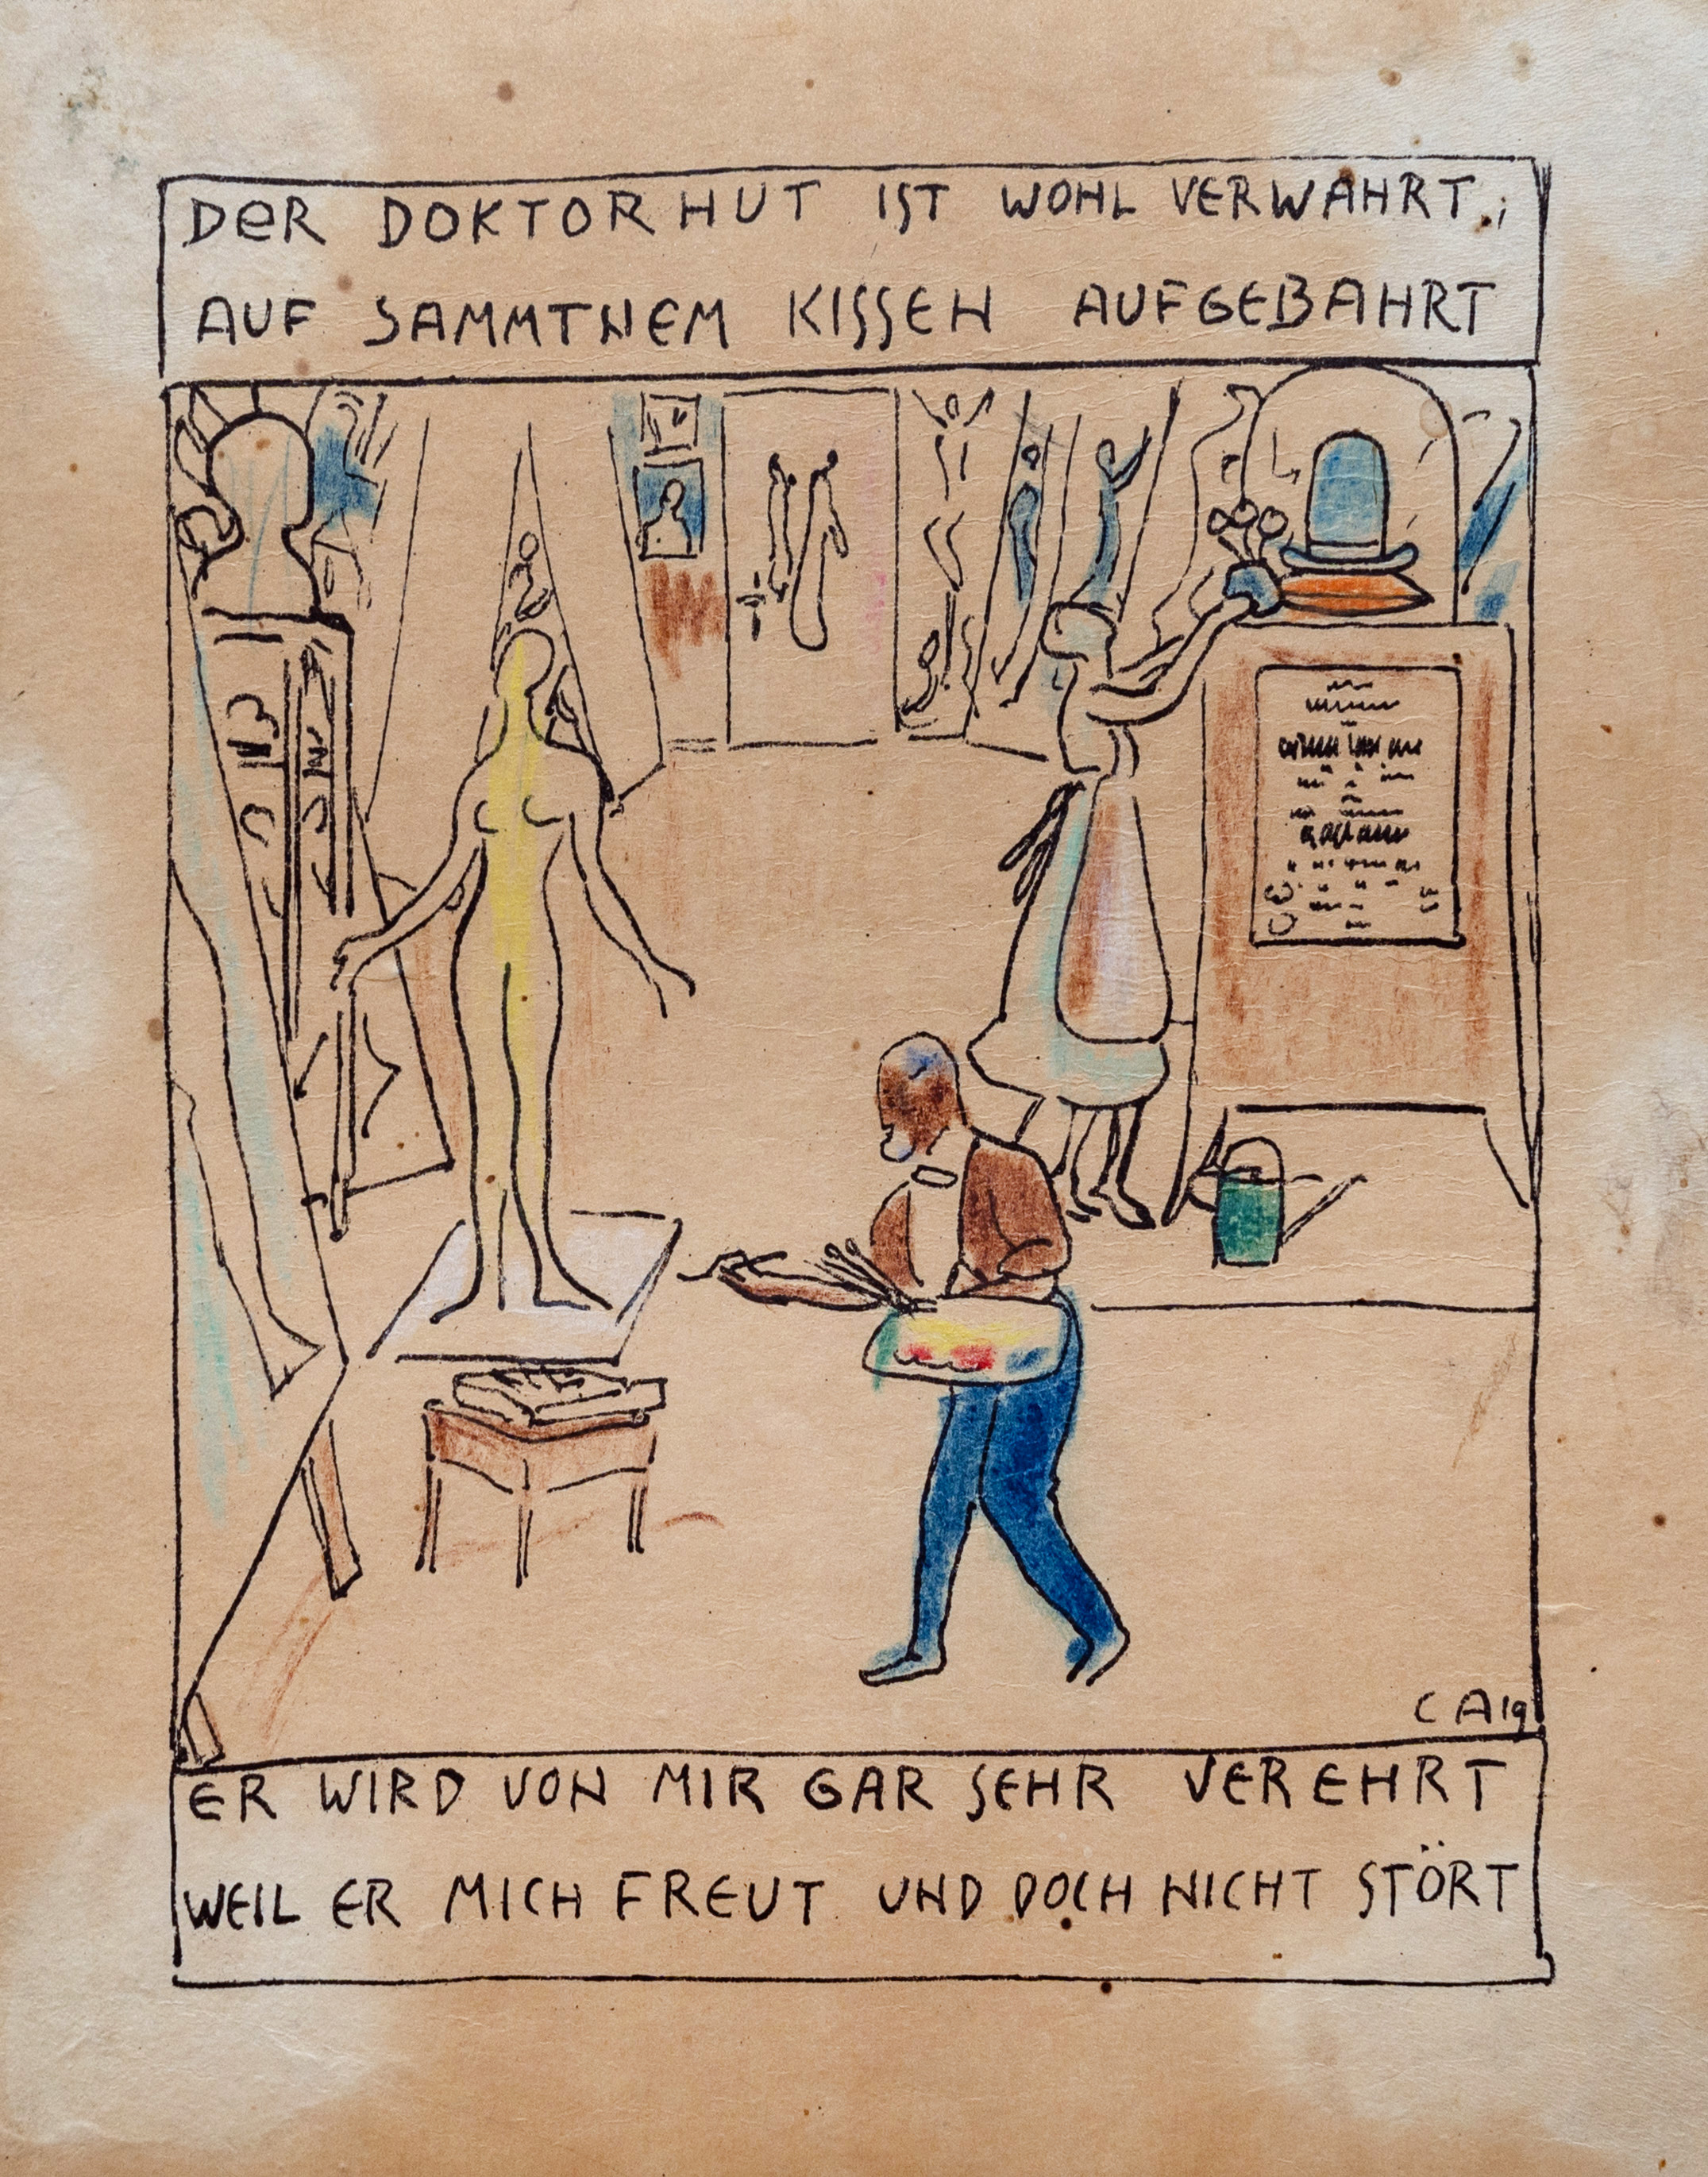 DER DOKTORHUT IST WOHL VERWAHRT;
AUF SAMMTNEM KISSEN AUFGEBAHRT
CA19
ER WIRD VON MIR GAR SEHR VEREHRT
WEIL ER MICH FREUT UND DOCH NICHT STÖRT